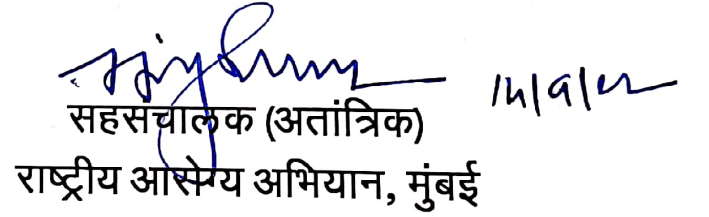 14/9/22
सहसंचालक (अतांत्रिक)
राष्ट्रीय आरोग्य अभियान, मुंबई